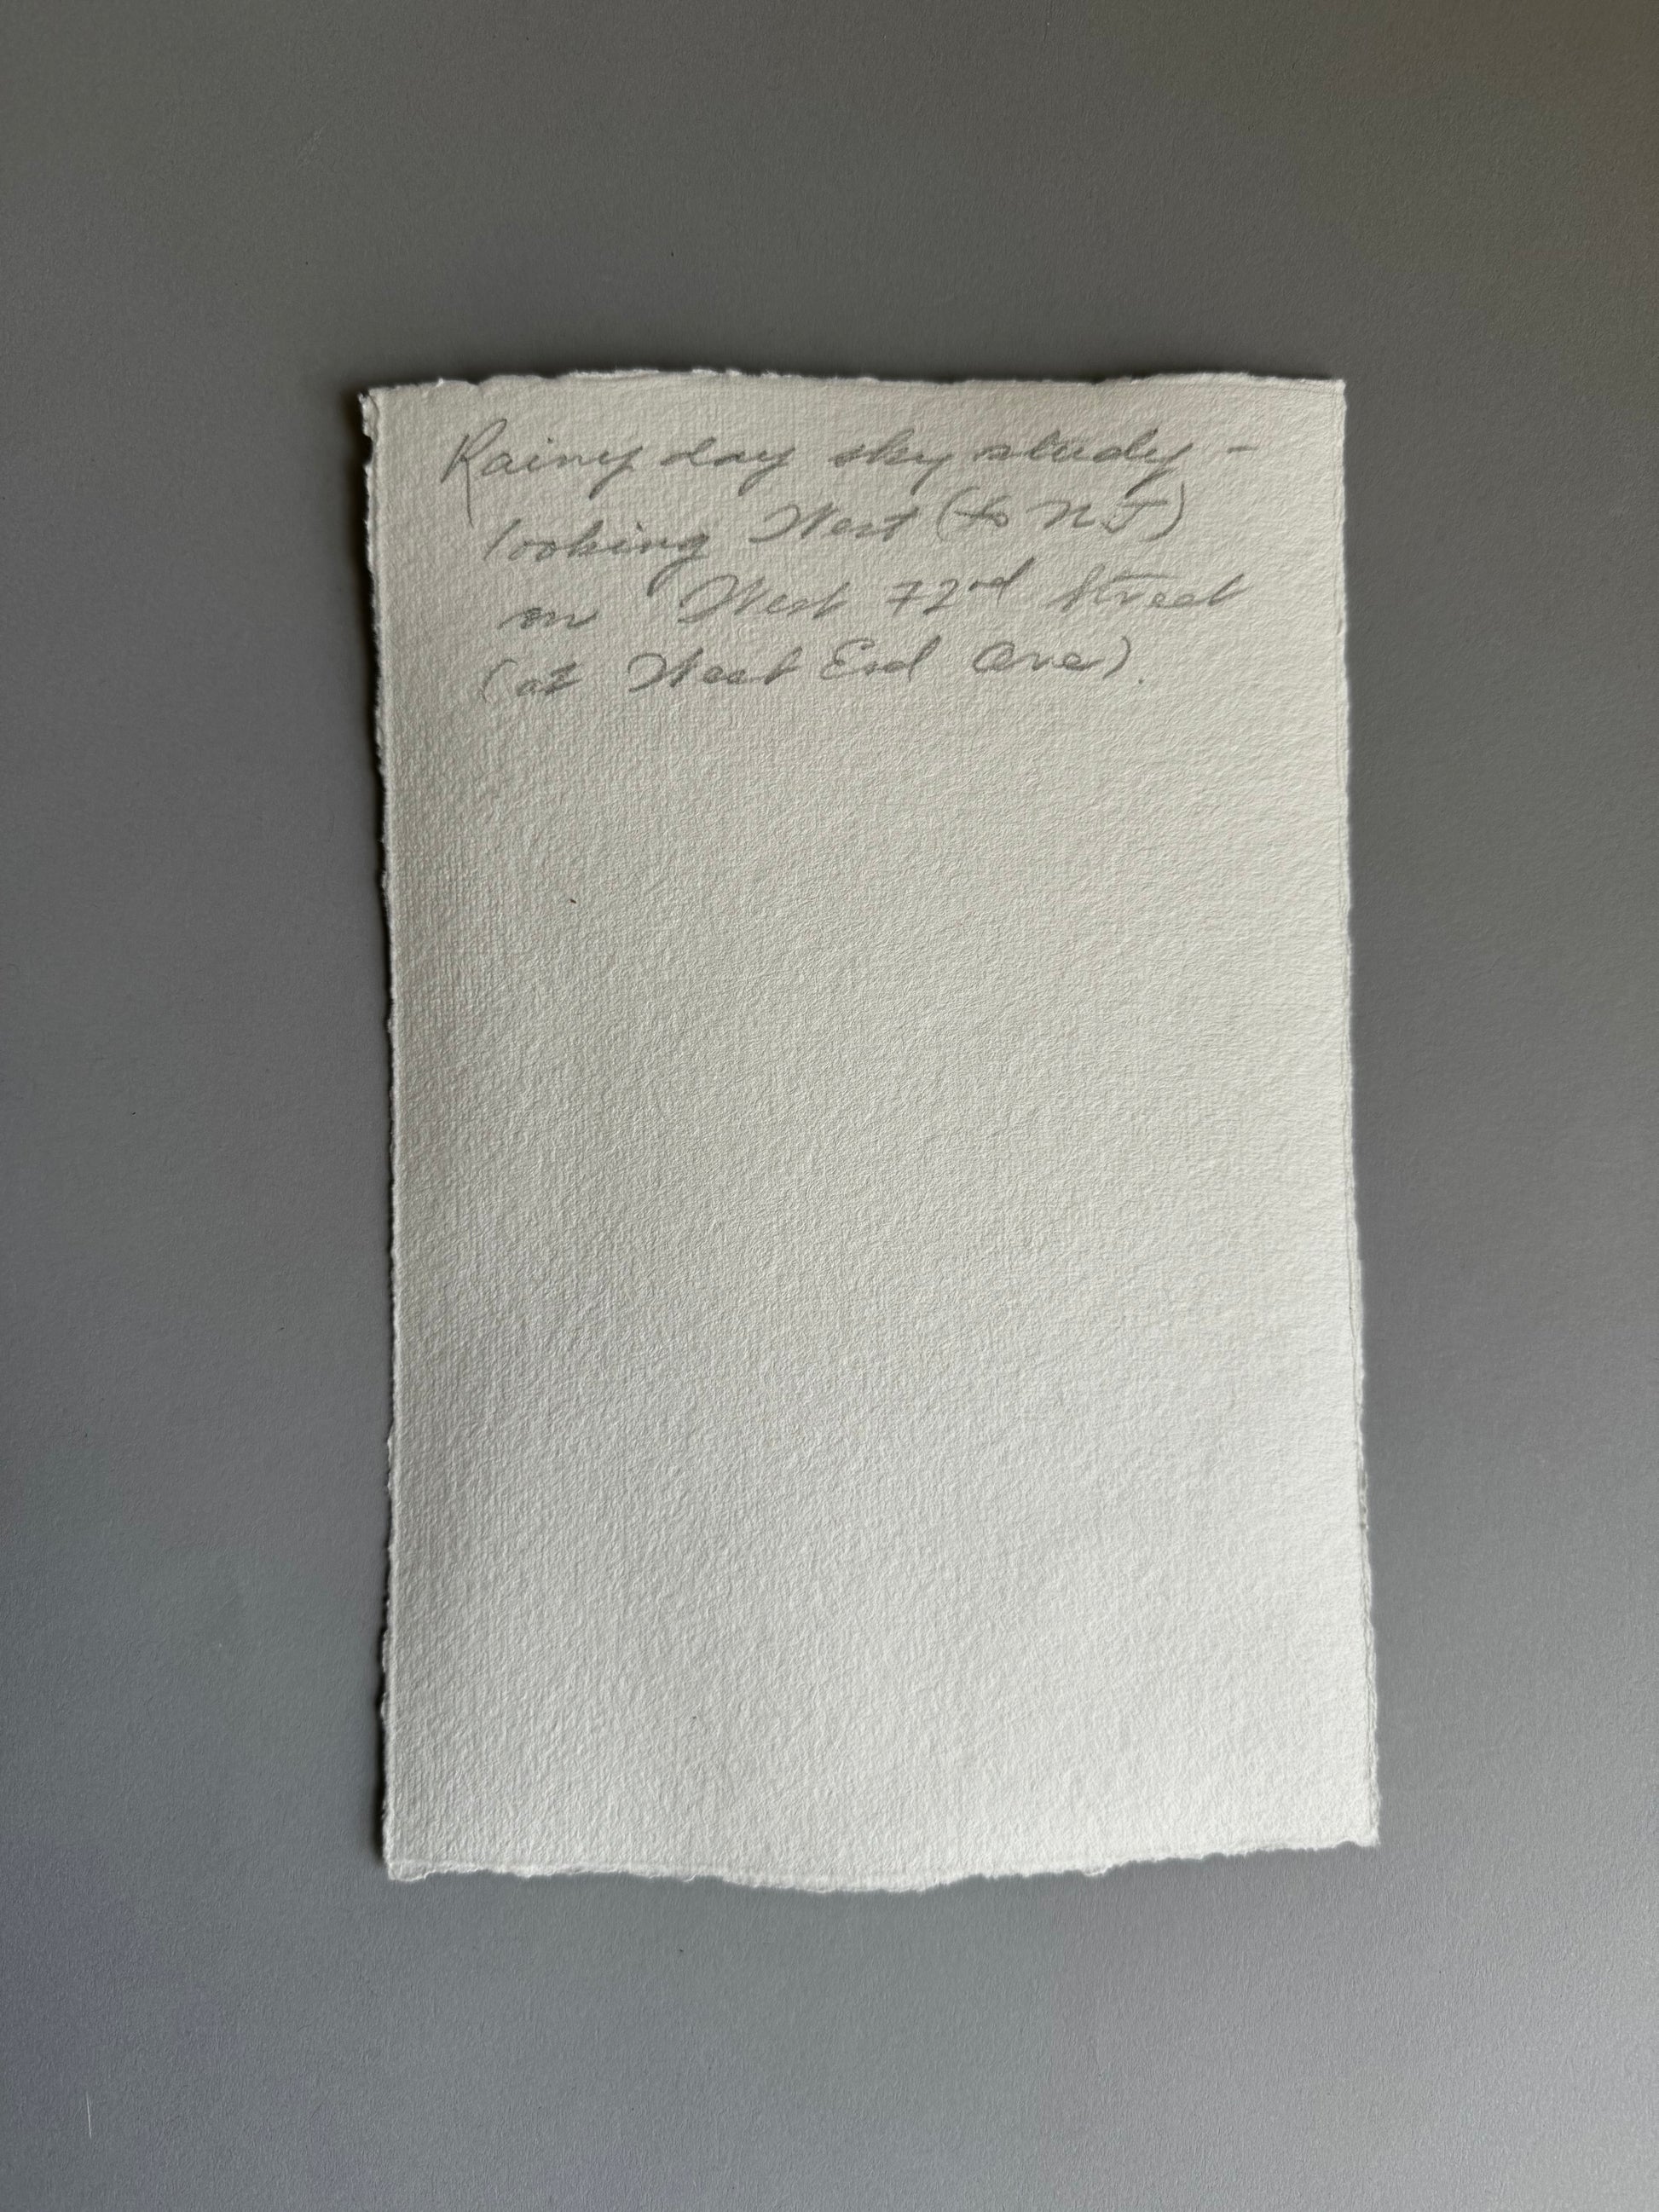 Rainy day sky study -
looking West (to NJ)
on West 72nd Street
(at West End Ave).